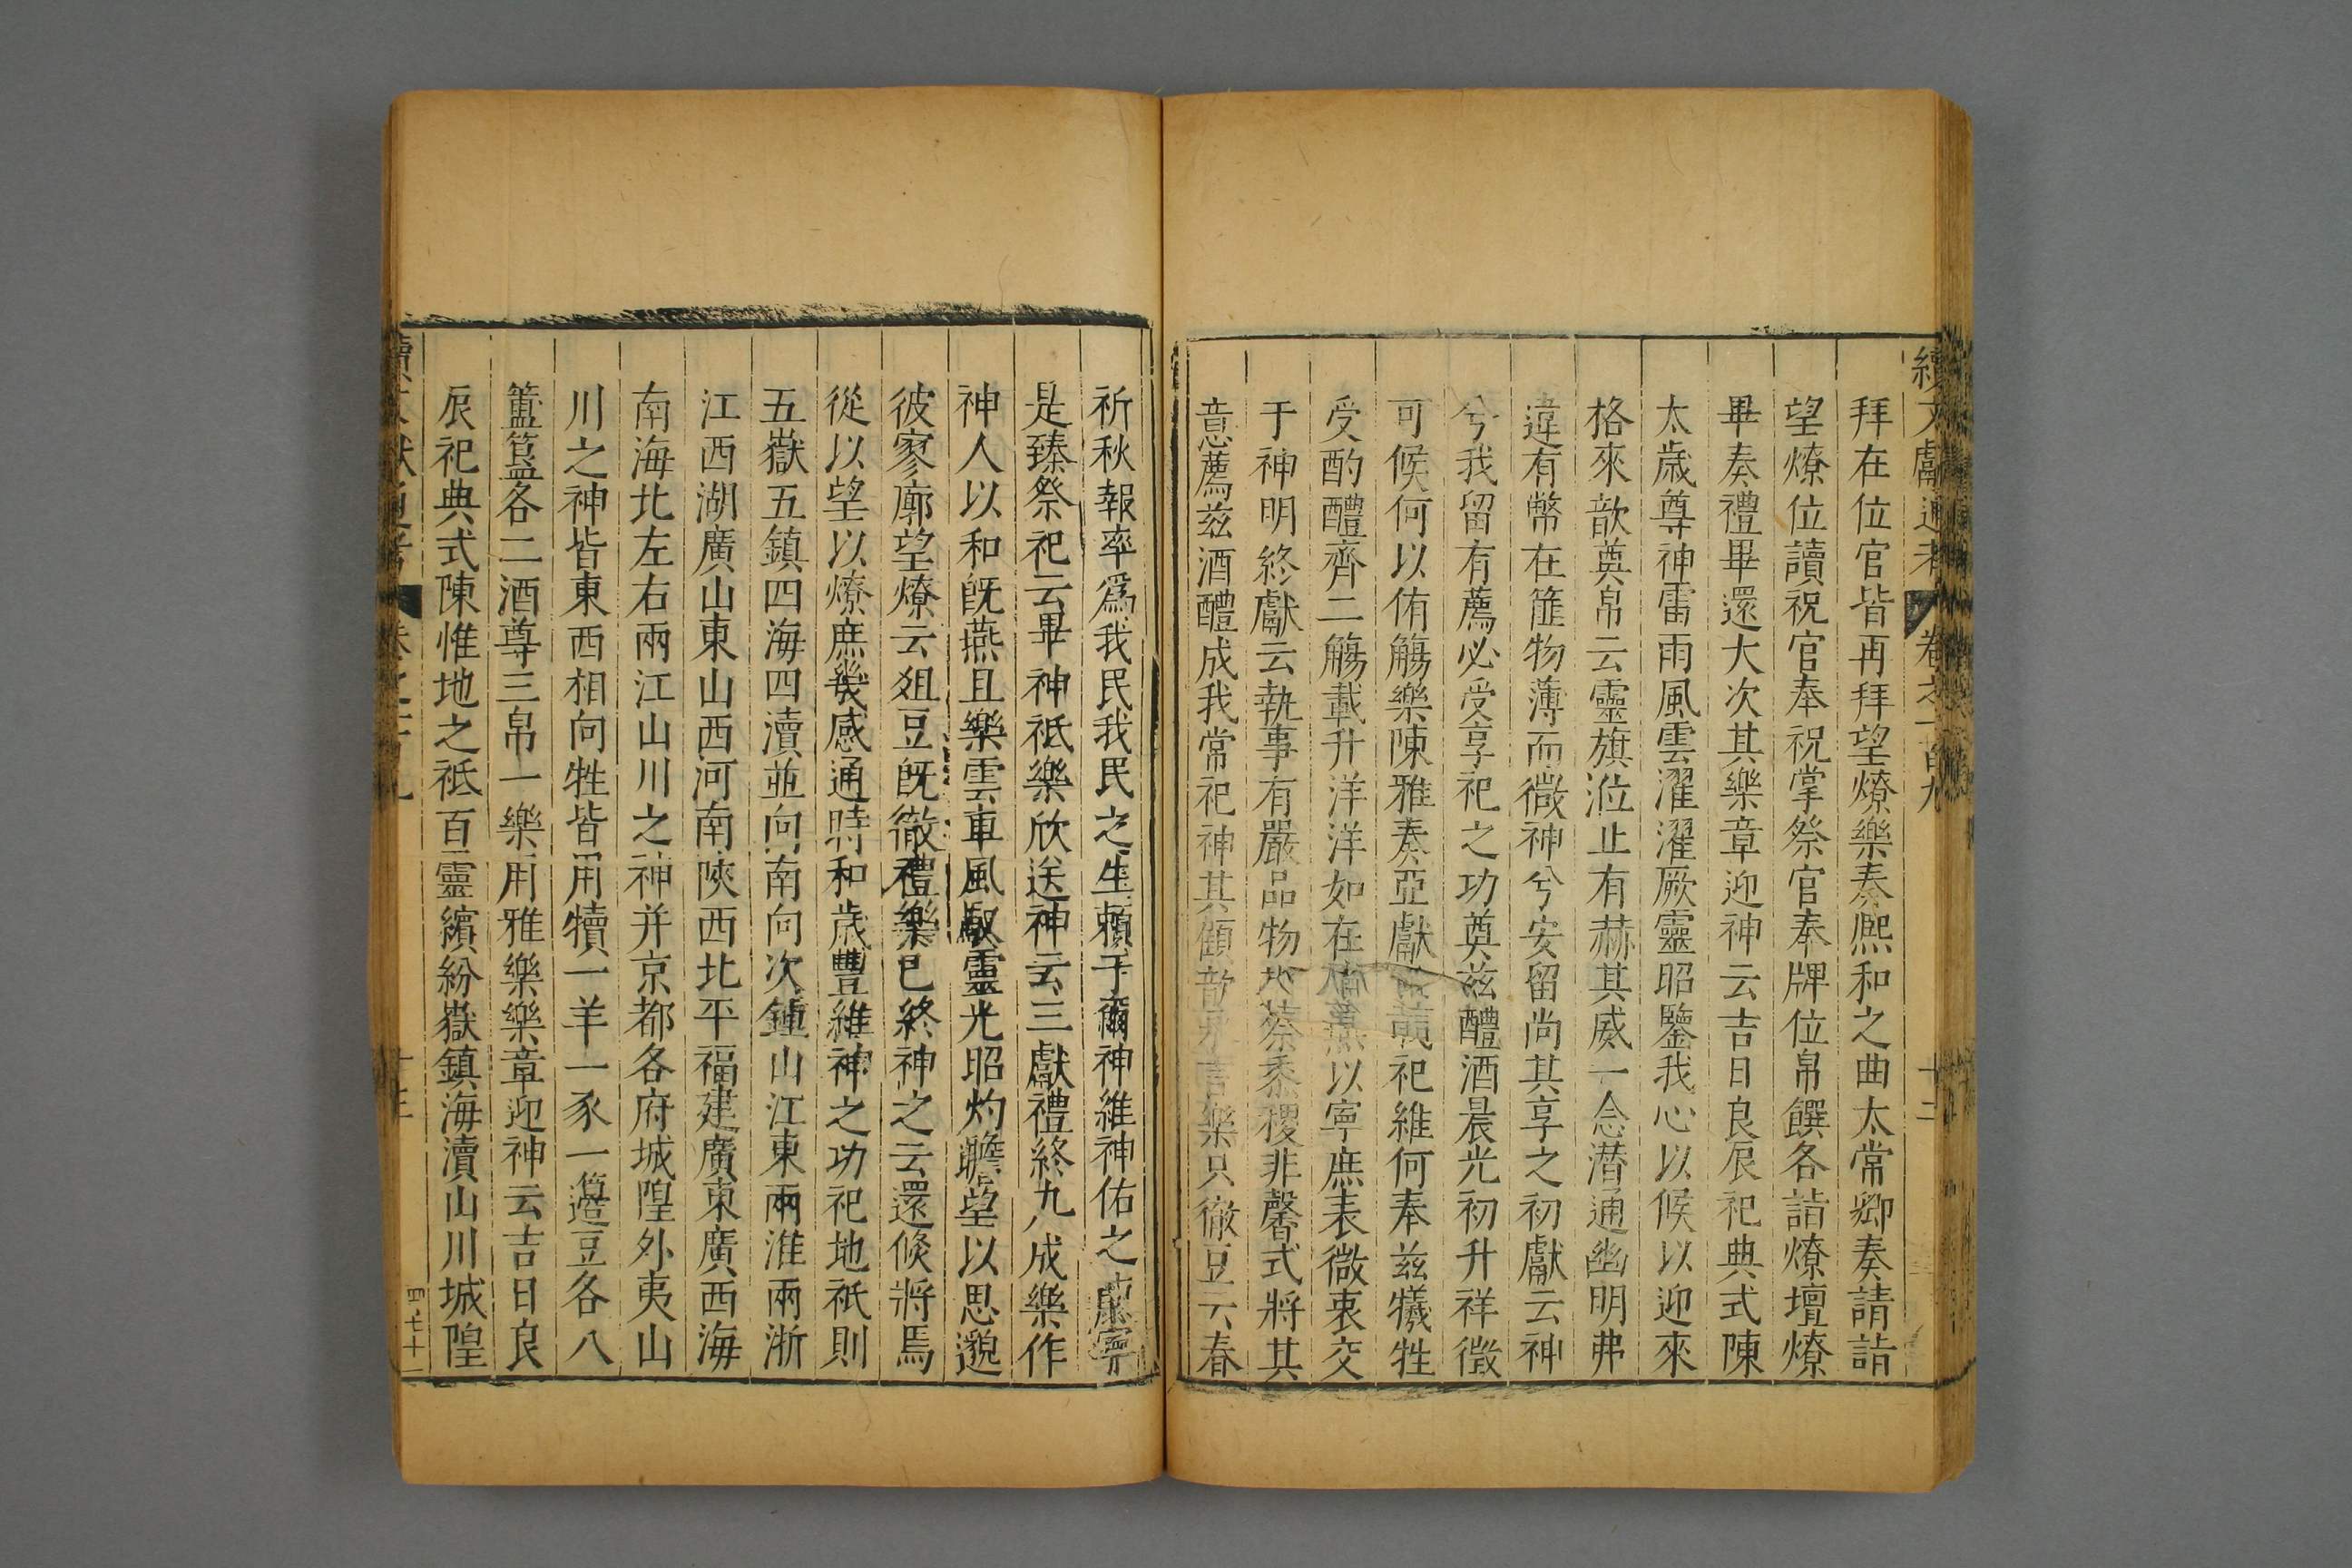 續文獻通考 卷之一百九 十二
拜在位官皆再拜望燎樂奏熙和之曲太常卿奏請詣
望燎位讀祝官奉祝掌祭官奉牌位帛饌各詣燎壇燎
畢奏禮畢還大次其樂章迎神云吉日良辰祀典式陳
太歲尊神雷雨風雲濯濯厥靈昭鑒我心以候以迎來
格來歆奠帛云靈旗涖止有赫其威一念潛通幽明弗
違有幣在篚物薄而微神兮安留尚其享之初獻云神
兮我留有薦必受享祀之功奠兹醴酒晨光初升祥徵
可候何以侑觴樂陳雅奏亞獻祀維何奉兹犧牲
受酌醴齊二觴載升洋洋如在以寧庶表微衷交
于神明終獻云執事有嚴品物黍稷非馨式將其
意薦兹酒醴成我常祀神其顧歆言樂只徹豆云春
祈秋報率爲我民我民之生賴于爾神維神佑之康寧
是臻祭祀云畢神祗樂欣送神云三獻禮終九成樂作
神人以和旣燕且樂雲車風馭靈光昭灼瞻望以思邈
彼寥廓望燎云俎豆旣徹禮樂已終神之云還倐將焉
從以望以燎庶幾感通時和歲豐維神之功祀地祇則
五嶽五鎮四海四瀆並向南向次鍾山江東兩淮兩浙
江西湖廣山東山西河南陝西北平福建廣東廣西海
南海北左右兩江山川之神并京都各府城隍外夷山
川之神皆東西相向牲皆用犢一羊一豕一籩豆各八
簠簋各二酒尊三帛一樂用雅樂樂章迎神云吉日良
辰祀典式陳惟地之祗百靈繽紛嶽鎮海瀆山川城隍
四七十一